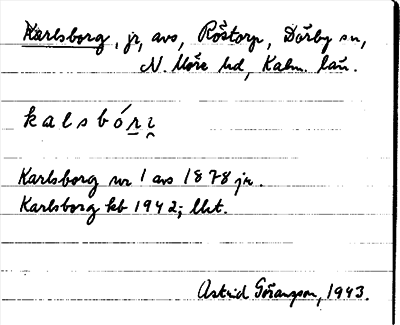 Karlsborg, jr, avs, Röstorp, Dörby sn,
N. Möre hd, Kalm. län.
kalsbóri̯
Karlsborg nr 1 avs 1878 jr.
Karlsborg kb 1942; lht.
Astrid Göransson, 1943.